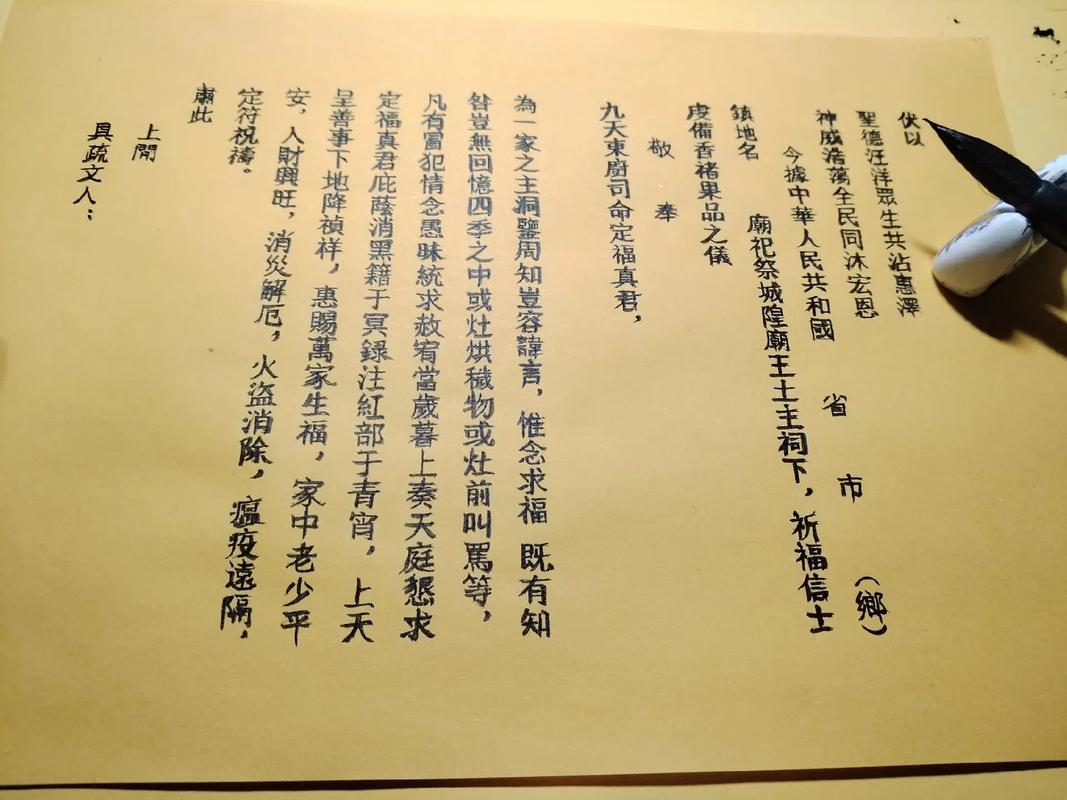 伏以
聖德汪洋眾生共沾惠澤
神威浩蕩全民同沐宏恩
今據中華人民共和國 省 市 (鄉)
鎮地名 廟祀祭城隍廟王土主祠下，祈福信士
虔備香褚果品之儀
敬奉
九天東廚司命定福真君，
為一家之主洞鑒周知豈容諱言，惟念求福 既有知
咎豈無回憶四季之中或灶烘穢物或灶前叫罵等，
凡有冒犯情念愚昧統求赦宥當歲暮上奏天庭懇求
定福真君庇蔭消黑籍于冥錄注紅部于青宵，上天
呈善事下地降禎祥，惠賜萬家生福，家中老少平
安，人財興旺，消災解厄，火盜消除，瘟疫遠隔，
定符祝禱。
肅此
上開
具疏文人：